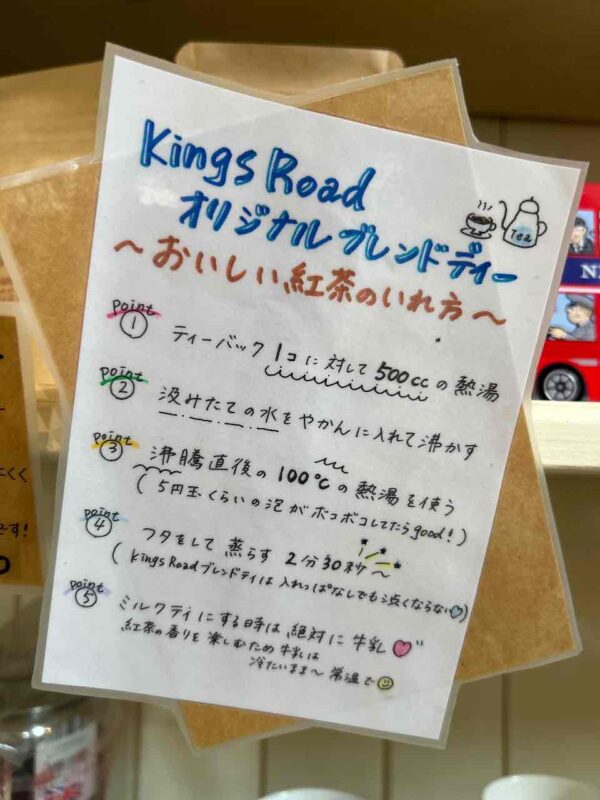 Kings Road
オリジナルブレンドティー
～おいしい紅茶のいれ方～
Tea
point
①
ティーバック 1コに対して 500ccの熱湯
point
②
汲みたての水をやかんに入れて沸かす
point
③
沸騰直後の 100℃の熱湯を使う
(5円玉くらいの泡がボコボコしてたらgood!)
point
④
フタをして 蒸らす 2分30秒～
(Kings Roadブレンドティは 入れっぱなしでも渋くならない♡)
point
⑤
ミルクティにする時は 絶対に 牛乳♡
紅茶の香りを 楽しむため 牛乳は
冷たいまま～ 常温で☺
くく
です!
N